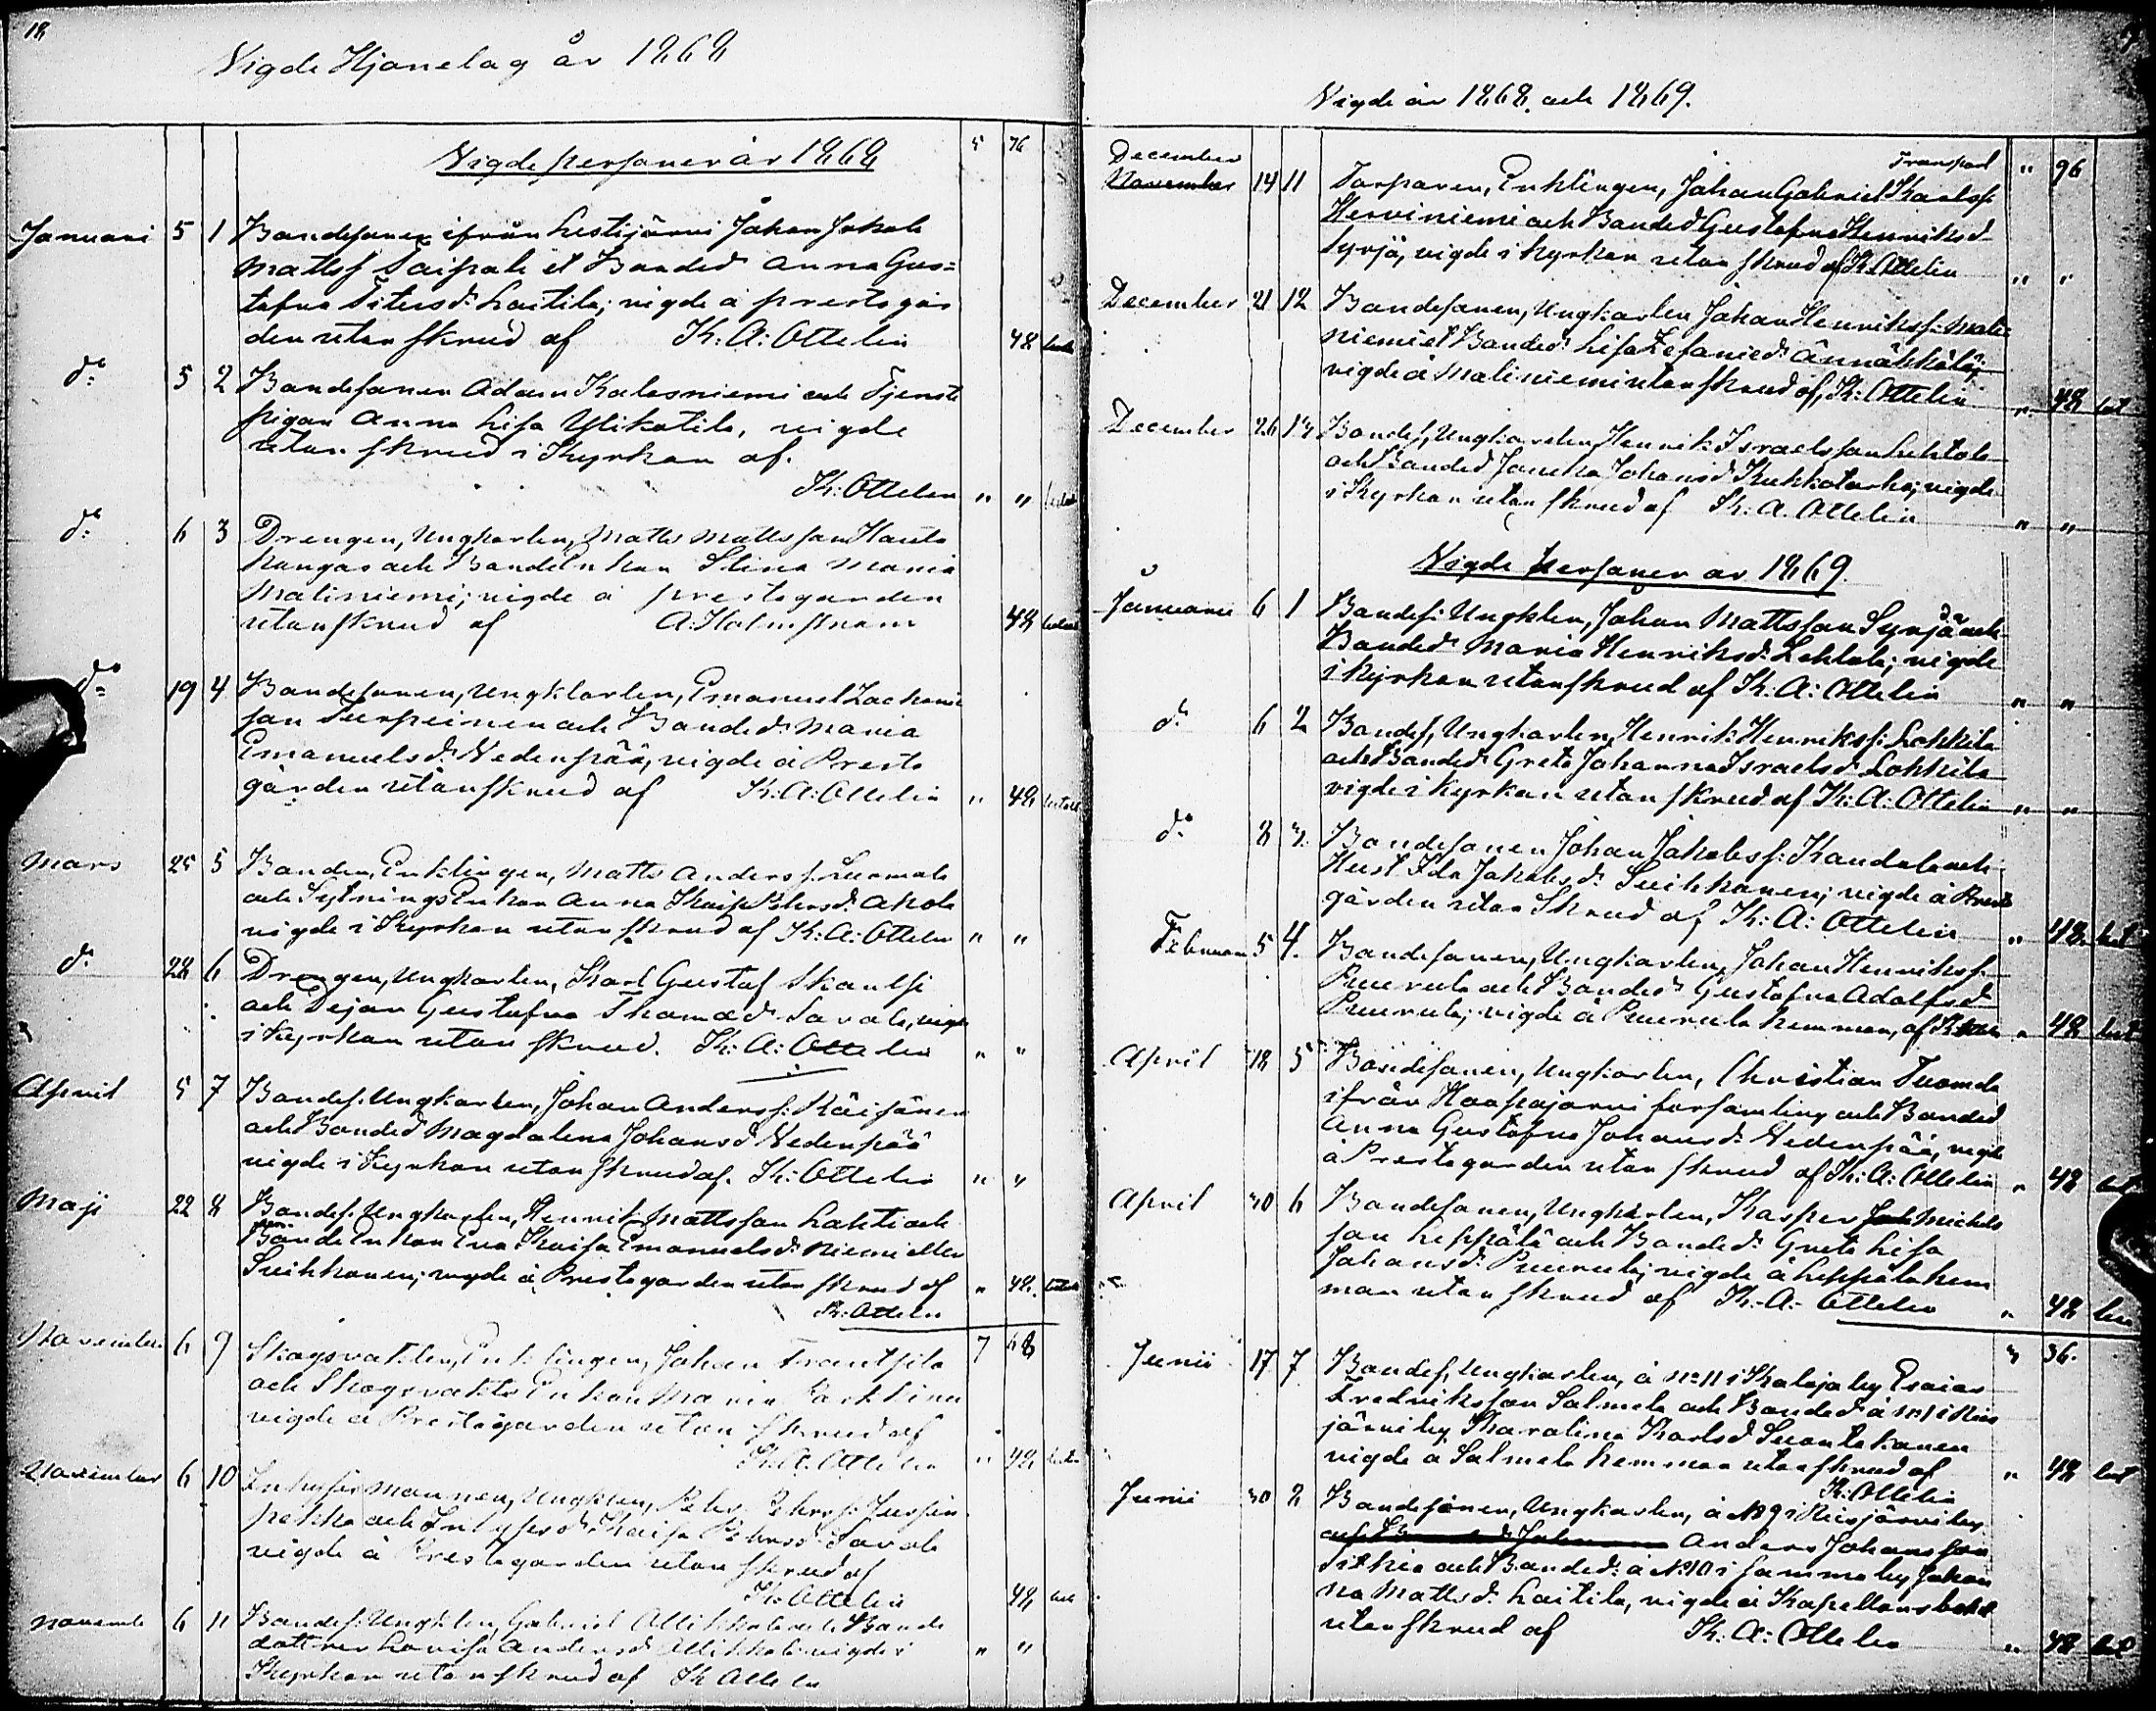 18
Vigde Hjonelag år 1868
Vigde personer år 1868
5 76
Januari 5 1 Bondesonen ifrån Lestijärvi Johan Jakob
Mattss Paipale et Bonded Anna Gus=
tafva Petersd: Laitila; vigde å prestgår
den utan skrud af K: A: Ottelin 48
do 5 2 Bondesonen Adam Kalasniemi och Tjenste
pigan Anna Lisa Ylikotila, vigde
utan skrud i Kyrkan af.
K: Ottelin " "
do 6 3 Drengen, Ungkarlen, Matts Mattsson Hauta
kangas och Bondeenkan Stina Maria
Maliniemi; vigde å prestegården
utan skrud af A: Holmström 48
do 19 4 Bondesonen, Ungkarlen, Emanuel Zacharie
son Turpeinen och Bonded: Maria
Emanuelsd: Vedenpää, vigde å Preste
gården utan skrud af K: A: Ottelin " 48
Mars 25 5 Bonden, Enklingen, Matts Anderss: Luomala
och Sytningsenkan Anna Kaisa Petersd: Ahola
vigde i Kyrkan utan skrud af K: A: Ottelin " "
do 28 6 Drengen, Ungkarlen, Karl Gustaf Skantsi
och Pejan Gustafva Thomasd: Savola, vigde
i Kyrkan utan skrud. K: A: Ottelin " "
April 5 7 Bondes: Ungkarlen, Johan Anderss: Räisänen
och Bonded Magdalena Johansd Vedenpää
vigde i Kyrkan utan skrud af. K: Ottelin " "
Maji 22 8 Bondes: Ungkarlen, Henrik Mattsson Lahti och
Bonde Enkan Eva Kaisa Emanuelsd: Niemi eller
Suihkonen; vigde å Prestegården utan skrud af " 48
K: Ottelin
November 6 9 Skogsvakten, Enklingen, Johan Trantsila 7 68
och Skogsvakts Enkan Maria Parkkinen
vigde å Prestegården utan skrud af
K: A: Ottelin " 48
November 6 10 Inhysesmannen, Ungklen, Peter Peterss: Jussin
pekka och Inhysesd: Kaisa Petersd: Savola
vigde å Prestegården utan skrud af
K: Ottelin 48
November 6 11 Bondes: Ungklen, Gabriel Ollikkala och Bonde
dottren Lovisa Andersd Ollikkala vigde i " "
Kyrkan utan skrud af K Ottelin
Vigde år 1868. och 1869.
Transport " 96
December
November 14 11 Torparen, Enklingen, Johan Gabriel Karlss:
Herviniemi och Bonded Gustafva Henriksd
Syrjä, vigde i kyrkan utan skrud af K: Ottelin " "
December 21 12 Bondesonen, Ungkarlen Johan Henrikss: Mali=
niemi et Bonded: Lisa Zefanied: Ännäkkälä;
vigde å Maliniemi utan skrud af, K: Ottelin " 48 bet
December 26 13 Bondes, Ungkarlen Henrik Israelsson Lehtola
och Bonded Johanna Johansd Kukkotarha; vigde
i Kyrkan utan skrud af K: A. Ottelin " "
Vigde personer år 1869.
Januari 6 1 Bondes: Ungklen, Johan Mattsson Syrjä och
Bonded: Maria Henriksd: Lehtola; vigde
i Kyrkan utan skrud af K: A: Ottelin " "
do 6 2 Bondes, Ungkarlen, Henrik Henrikss: Lokkila
och Bonded Greta Johanna Israelsd Lokkila
vigde i Kyrkan utan skrud af K: A: Ottelin " "
do 8 3 Bondesonen Johan Jakobss: Kandola och
Hust Ida Jakobsd: Suihkonen; vigde å Prest
gården utan Skrud af K: A: Ottelin " 48 bet
Februari 5 4. Bondesonen, Ungkarlen, Johan Henrikss:
Puurula och Bonded: Gustafva Adolfsd
Puurula; vigde å Puurula hemman, af K: " 48 bet
April 18 5 Bondesonen, Ungkarlen, Christian Tuomala
ifrån Haapajärvi församling och Bonded
Anna Gustafva Johansd: Vedenpää, vigde
å Prestegården utan skrud af K: A: Ottelin " 48
April 30 6 Bondesonen, Ungkarlen, Kasper Michels
son Leppälä och Bonded: Greta Lisa
Johansd: Puurula; vigde å Leppälä hem
man utan skrud af K: A: Ottelin " 48
3 36.
Junii 17 7 Bondes, Ungkarlen, å No 11 i Kalaja by Esaias
Fredriksson Salmela och Bonded å No 1 i Reis
järvi by Karolina Karlsd Suontakanen
vigde å Salmela hemman utan skrud af " 48 bet
K: Ottelin
Junii 30 8 Bondesonen, Ungkarlen, å No 9 i Reisjärvi by
Anders Johansson
Pitkä och Bonded: å No 10 i samma by Johan
na Mattsd: Laitila, vigde å Kapellansbohl
utan skrud af K: A: Ottelin " 48 bet